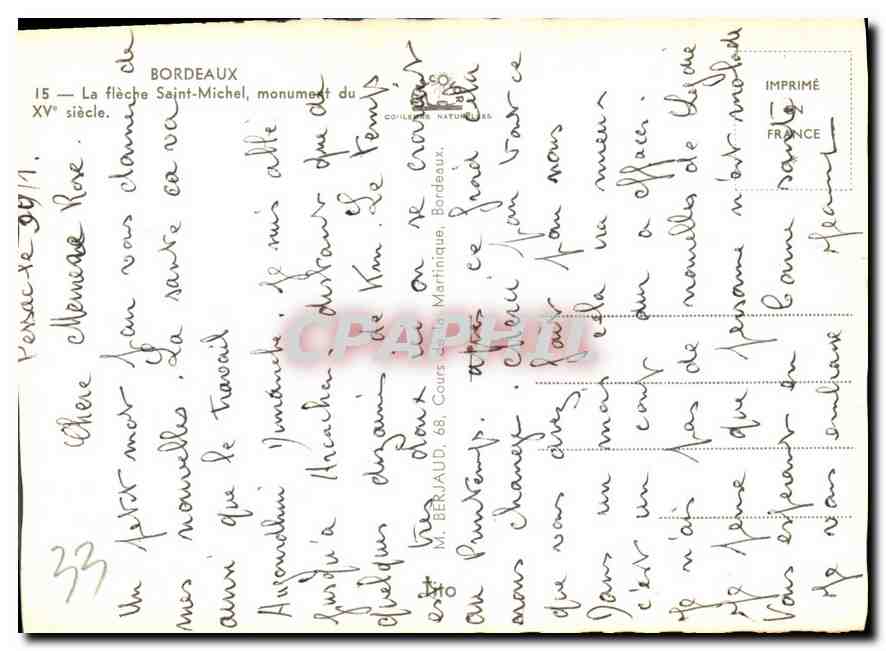 BORDEAUX
15 — La flèche Saint-Michel, monument du
XVe siècle.
COULEURS NATURELLES
IMPRIMÉ
EN
FRANCE
M. BERJAUD, 68, Cours de la Martinique, Bordeaux.
CPAPHIL
33
Pessac le 29/1.
Chère Memene Rose.
Un petit mot pour vous donner de
mes nouvelles. La santé ca va
ainsi que le travail
Aujourdhui Dimanche. Je suis allé
Jusqu'a Arcachon distant que de
quelques dizaines de Km. Le temps
est tres doux ici on se croirait
au Printemps. après ce froid cela
nous change. Merci pour tout ce
que vous avez fait pour nous
Dans un mois cela ira mieux
c'est un coup dur a effacer.
Je n'ais pas de nouvelles de
Je pense que personne n'est malade
Vous esperant en bonne santé
Je vous embrasse